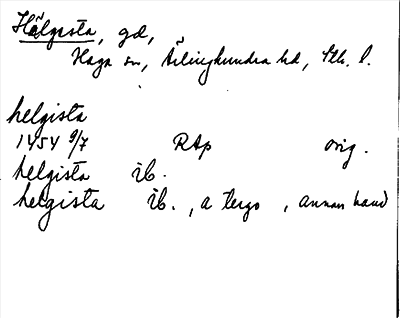 Hälgesta, gd,
Haga sn, Ärlinghundra hd, Sth. l.
helgista
1454 9/7 RAp orig.
helgista ib.
helgista ib., a tergo, annan hand